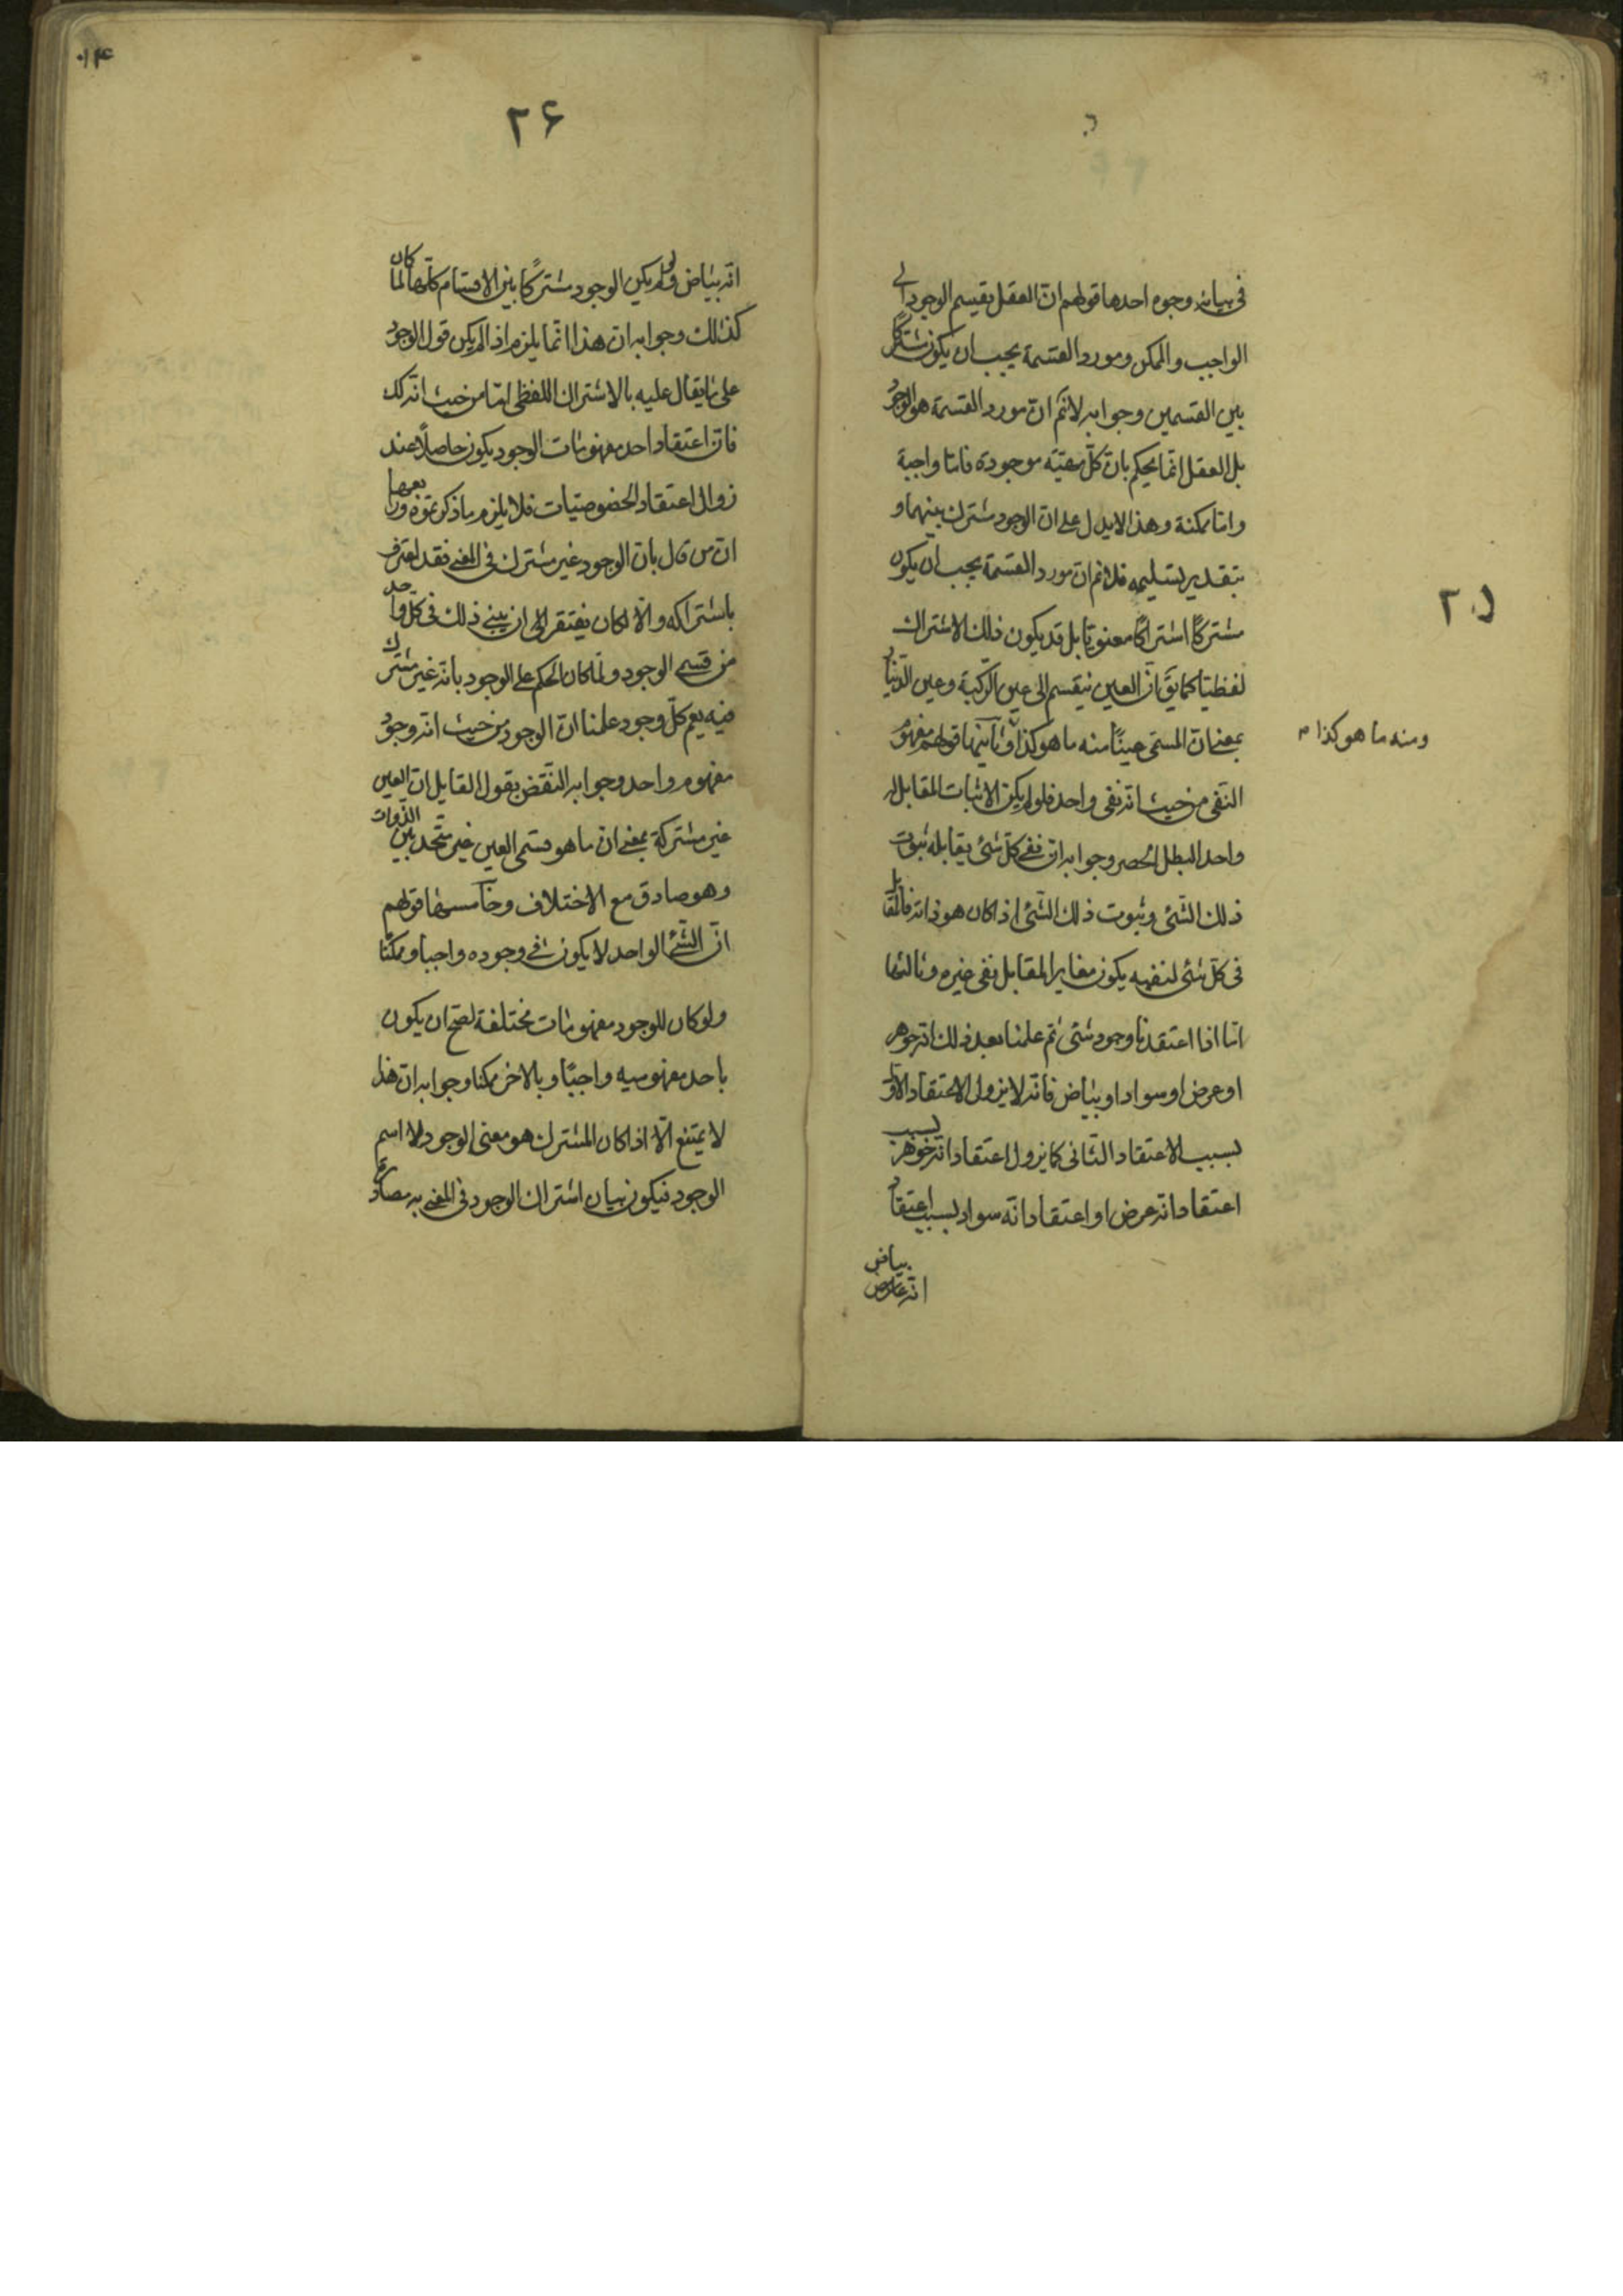 في بيانه وجوه احدها قولهم ان العقل يقسم الوجود الى
الواجب والممكن ومورد القسمة يجب ان يكون مشتركا
بين القسمين وجوابه لانم ان مورد القسمة هو الوجود
بل العقل انما يحكم بان كل مهيته موجودة فاما واجبة
واما ممكنة وهذا لايدل على ان الوجود مشترك بينهما و
بتقدير تسليمه فلانم ان مورد القسمة يجب ان يكون
مشتركًا اشتراكًا معنويا بل قد يكون ذلك الاشتراك
لفظيا كما يق ان العين ينقسم الى عين الركبة وعين الدينار
بمعنى ان المسمى عينًا منه ما هو كذا وثانيها قولهم مفهوم
ومنه ما هو كذا م
النفى من حيث انه نفى واحد فلو لم يكن الاثبات المقابل له
واحد البطل الحصر وجوابه ان نفى كل شئ يقابله ثبوت
ذلك الشئ وثبوت ذلك الشئ اذا كان هو ذاته فالمقابل
فى كل شئ لنفيه يكون مغايرا لمقابل نفى غيره وثالثها
انا اذا اعتقدنا وجود شئ ثم علمنا بعد ذلك انه جوهر
او عرض او سواد او بياض فانه لا يزول الاعتقاد الاول
بسبب الاعتقاد الثانى كما يزول اعتقاد انه جوهر بسبب
اعتقاد انه عرض او اعتقاد انه سواد بسبب اعتقاد
انه بياض
٢٥
٢۶
٠١۴
انه بياض ولو لم يكن الوجود مشتركًا بين الاقسام كلها لما كان
كذلك وجوابه ان هذا انما يلزم اذا لم يكن قول الوجود
على ما يقال عليه بالاشتراك اللفظى اما من حيث انه كك
فان اعتقاد احد مفهومات الوجود يكون حاصلًا عند
زوال اعتقاد الخصوصيات فلا يلزم ما ذكرتموه ورابعها
ان من قال بان الوجود غير مشترك فى المعنى فقد اعترف
باشتراكه والا لكان يفتقر الى ان يبنى ذلك فى كل واحد
من قسمى الوجود ولما كان الحكم على الوجود بانه غير مشترك
فيه يعم كل وجود علمنا ان الوجود من حيث انه وجود
مفهوم واحد وجوابه النقض بقول القايل ان العين
غير مشتركة بمعنى ان ما هو مسمى العين غير متحد بين الذوات
وهو صادق مع الاختلاف وخامسها قولهم
ان الشئ الواحد لا يكون فى وجوده واجبا وممكنًا
ولو كان للوجود مفهومات مختلفة لصح ان يكون
باحد مفهوميه واجبًا وبالاخر ممكنا وجوابه ان هذا
لا يمتنع الا اذا كان المشترك هو معنى الوجود لا اسم
الوجود فيكون بيان اشتراك الوجود فى المعنى به مصادرة